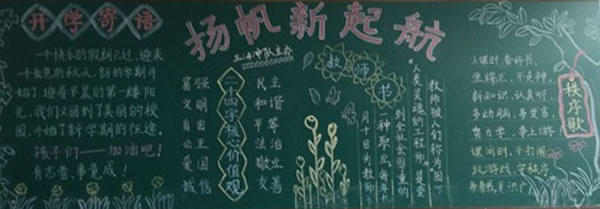 开学寄语
一个快乐的假期已过,迎来
一个金色的秋天,新的学期开
始了,迎着早晨的第一缕阳
光,我们又回到了美丽的校
园,开始了新学期的征途。
孩子们——加油吧!
有志者,事竟成!
扬帆新起航
三(4)中队主办
富强
文明
自由
公正
爱国
诚信
二十四字核心价值观
民主
和谐
平等
法治
敬业
友善
教师节
教师被人们称为园丁
"人类灵魂的工程师,是受
到全社会尊重的
一种职业,每年九
月十日为教师
秩序歌
上课时,看好书,
坐端正,不走神。
新知识,认真听,
多动脑,多发言。
努力学,争上游
课间时,不打闹
玩游戏,守秩序